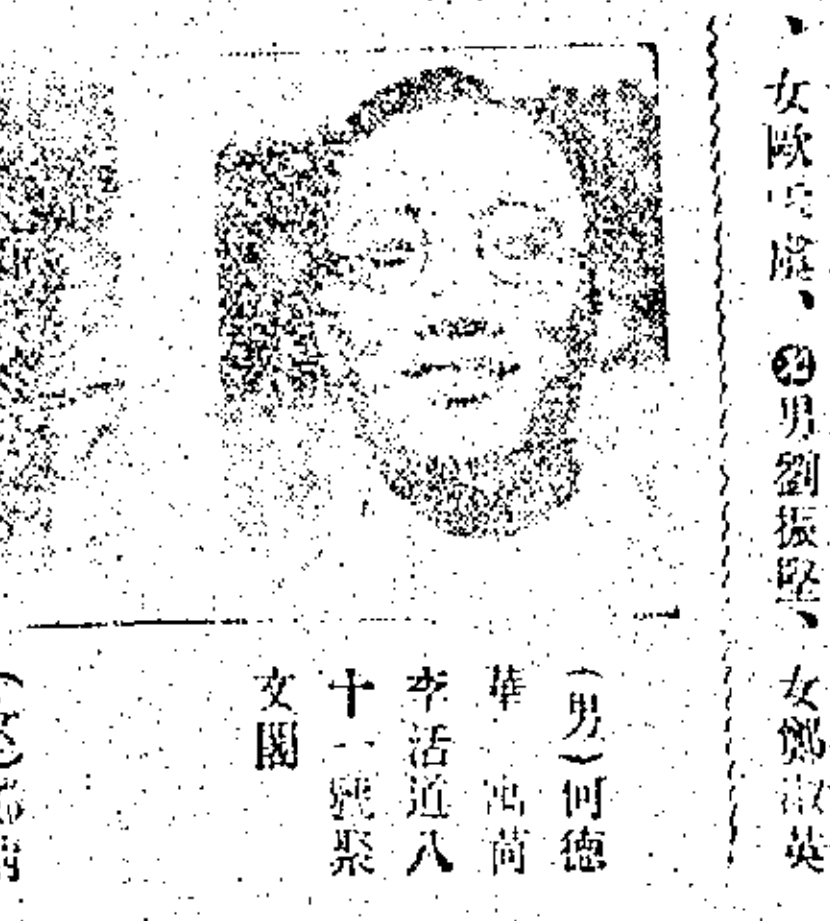 、女歐
、男劉振堅、女鄭淑英
(男)何德
華 寓荷
李活道八
十一號聚
文閣